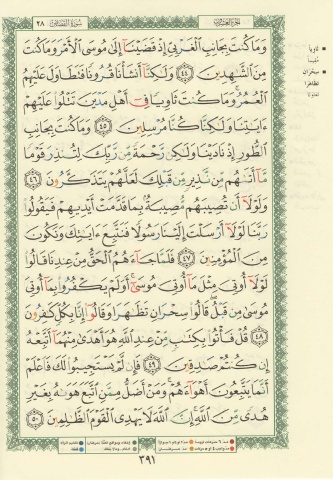 ٢٨ سُورَةُ القَصَصِ الجُزْءُ العِشْرُونَ
وَمَا كُنتَ بِجَانِبِ الْغَرْبِيِّ إِذْ قَضَيْنَا إِلَىٰ مُوسَى الْأَمْرَ وَمَا كُنتَ
مِنَ الشَّاهِدِينَ ٤٤ وَلَٰكِنَّا أَنشَأْنَا قُرُونًا فَتَطَاوَلَ عَلَيْهِمُ
الْعُمُرُ وَمَا كُنتَ ثَاوِيًا فِي أَهْلِ مَدْيَنَ تَتْلُوا عَلَيْهِمْ
ءَايَٰتِنَا وَلَٰكِنَّا كُنَّا مُرْسِلِينَ ٤٥ وَمَا كُنتَ بِجَانِبِ
الطُّورِ إِذْ نَادَيْنَا وَلَٰكِن رَّحْمَةً مِّن رَّبِّكَ لِتُنذِرَ قَوْمًا
مَّا أَتَىٰهُم مِّن نَّذِيرٍ مِّن قَبْلِكَ لَعَلَّهُمْ يَتَذَكَّرُونَ ٤٦
وَلَوْلَا أَن تُصِيبَهُم مُّصِيبَةٌ بِمَا قَدَّمَتْ أَيْدِيهِمْ فَيَقُولُوا
رَبَّنَا لَوْلَا أَرْسَلْتَ إِلَيْنَا رَسُولًا فَنَتَّبِعَ ءَايَٰتِكَ وَنَكُونَ
مِنَ الْمُؤْمِنِينَ ٤٧ فَلَمَّا جَاءَهُمُ الْحَقُّ مِنْ عِندِنَا قَالُوا
لَوْلَا أُوتِيَ مِثْلَ مَا أُوتِيَ مُوسَىٰ أَوَلَمْ يَكْفُرُوا بِمَا أُوتِيَ
مُوسَىٰ مِن قَبْلُ قَالُوا سِحْرَانِ تَظَٰهَرَا وَقَالُوا إِنَّا بِكُلٍّ كَٰفِرُونَ
٤٨ قُلْ فَأْتُوا بِكِتَٰبٍ مِّنْ عِندِ اللَّهِ هُوَ أَهْدَىٰ مِنْهُمَا أَتَّبِعْهُ
إِن كُنتُمْ صَٰدِقِينَ ٤٩ فَإِن لَّمْ يَسْتَجِيبُوا لَكَ فَاعْلَمْ
أَنَّمَا يَتَّبِعُونَ أَهْوَاءَهُمْ وَمَنْ أَضَلُّ مِمَّنِ اتَّبَعَ هَوَىٰهُ بِغَيْرِ
هُدًى مِّنَ اللَّهِ إِنَّ اللَّهَ لَا يَهْدِي الْقَوْمَ الظَّٰلِمِينَ ٥٠
ثاويا
مقيما
سحران
تظاهرا
تعاونا
٣٩١